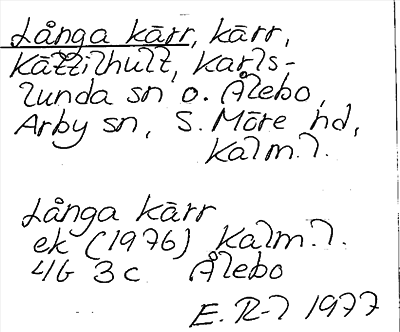 Långa kärr, kärr,
Kättilhult, Karls-
lunda sn o. Ålebo,
Arby sn, S. Möre hd,
Kalm. l.
Långa kärr
ek (1976) Kalm. l.
4G 3c Ålebo
E. R-l 1977